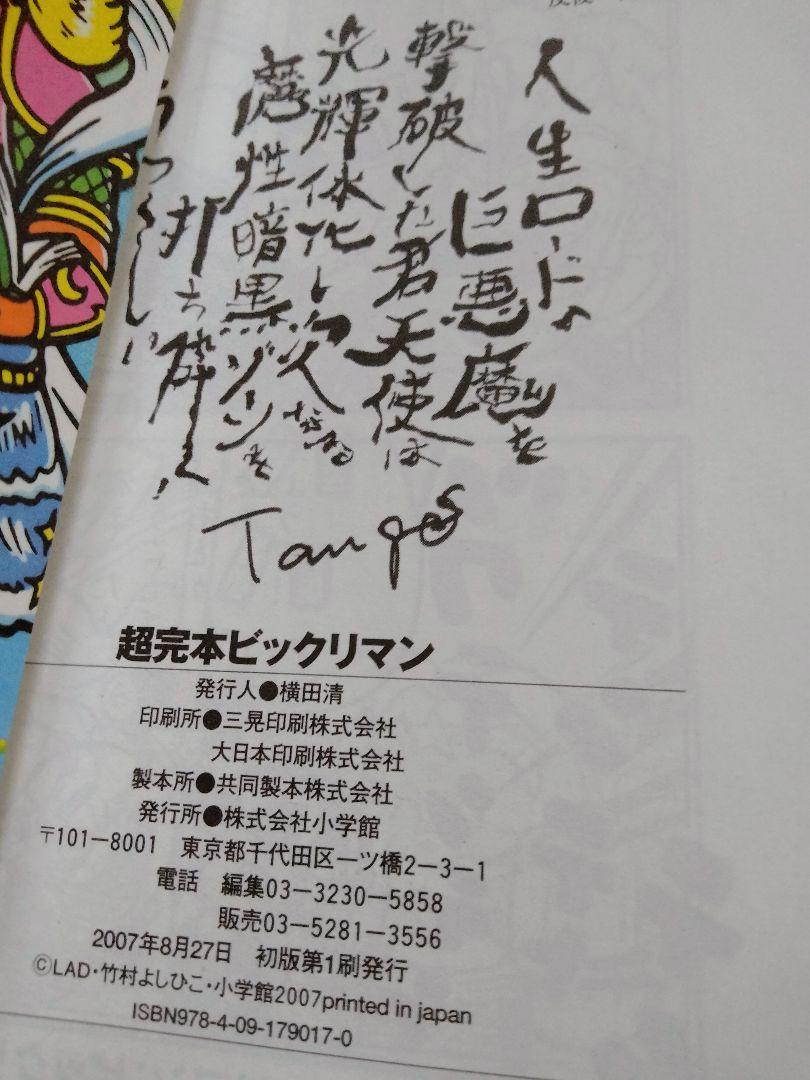 人生ロードの
巨悪魔を
撃破した君天使は
光輝体化し次なる
魔性暗黒ゾーンを
打ち砕け!
Tango
超完本ビックリマン
発行人●横田清
印刷所●三晃印刷株式会社
大日本印刷株式会社
製本所●共同製本株式会社
発行所●株式会社小学館
〒101-8001 東京都千代田区一ツ橋2-3-1
電話 編集03-3230-5858
販売03-5281-3556
2007年8月27日 初版第1刷発行
©LAD・竹村よしひこ・小学館2007printed in japan
ISBN978-4-09-179017-0